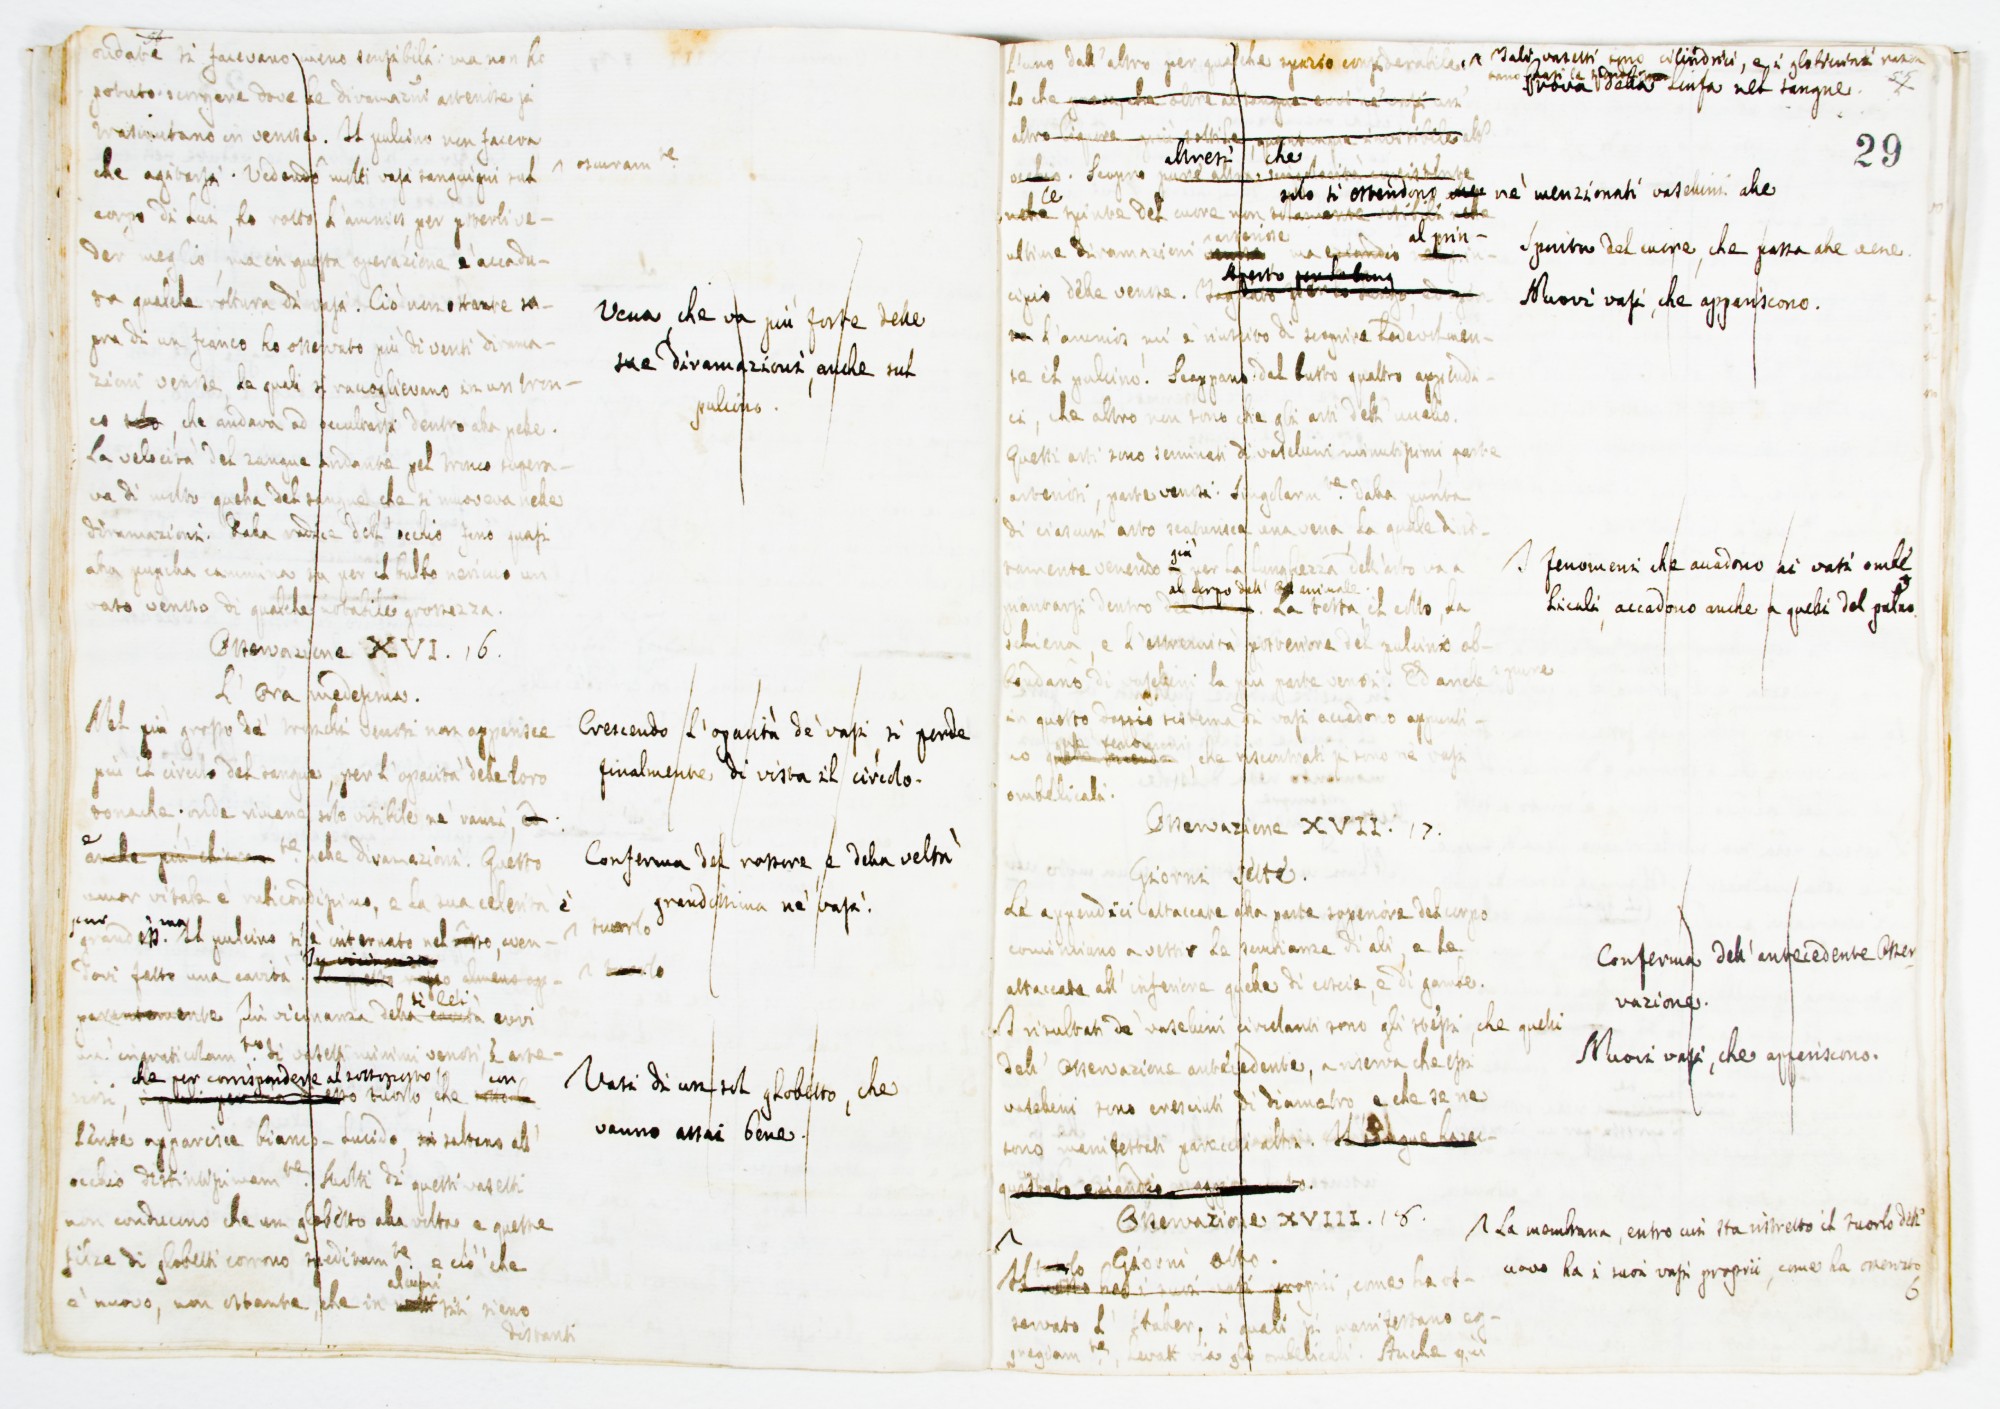 ondate si facevano meno sensibili: ma non ho
potuto scorgere dove le diramazni arteriose si
trasmutano in venose. Il pulcino non faceva
che agitarsi. Vedendo molti vasi sanguigni sul
corpo di lui, ho rotto l'amnios per poterli ve-
der meglio, ma in questa operazione è accadu-
ta qualche rottura di vasi. Ciò non ostante so-
pra di un fianco ho osservato più di venti dirama-
zioni venose, le quali si raccoglievano in un tron-
co solo, che andava ad occultarsi dentro alla pelle.
La velocità del sangue andante pel tronco supera-
va di molto quella del sangue che si muoveva nelle
diramazioni. Dalla radice dell'occhio fino quasi
alla pupilla cammina su per il bulbo nericcio un
vaso venoso di qualche notabile grossezza.
Osservazione XVI. 16.
L'Ora medesima.
Nel più grosso de' tronchi venosi non apparisce
più il circolo del sangue, per l'opacità delle loro
tonache; onde rimane solo visibile ne' rami, ed
anche più chiaram te. nelle diramazioni. Questo
umor vitale è rubicondissimo, e la sua celerità è
pur
grandiss.ma Il pulcino si è internato nel tuorlo, aven-
dovi fatto una cavità.
In vicinanza della cavità evvi
un' ingraticolam to. di vasetti minimi venosi, e arte-
che per corrispondere al sottoposto
riosi, tuorlo, che con
l'ente apparisce bianco-lucido, saltano all'
occhio distintissimam te. Molti di questi vasetti
non conducono che un globetto alla volta e queste
filze di globetti corrono speditam te. e ciò che
è nuovo, non ostante, che in alcuni siti sieno
distanti
oscuram te
Vena, che va più forte delle
sue diramazioni, anche sul
pulcino.
Crescendo l'opacità de' vasi si perde
finalmente di vista il circolo.
Conferma del rossore, e della veltà
grandissima ne' vasi.
tuorlo
tuorlo
Vasi di un sol globetto, che
vanno assai bene.
l'uno dall'altro per qualche spazio considerabile.
Lo che prova, che oltre al sangue evvi ne' vasi un'
altro liquore più sottile, quantunque invisibile all'
occhio. Scopro altresì che
nelle spinte del cuore non solo si estendono ne' menzionati vasellini alle
ultime diramazioni arteriose ma eziandio al prin-
cipio delle venose. Aperto
l'amnios mi è riuscito di scoprire lodevolmen-
te il pulcino. Scappano del busto quattro appendi-
ci, che altro non sono che gli arti dell'uccello.
Questi arti sono seminati di vasellini minutissimi parte
arteriosi, parte venosi. Singolarm te. dalla punta
di ciascun arto scaturisce una vena, la quale dirit-
tamente venendo giù per la lunghezza dell'arto va a
piantarsi dentro al corpo dell'animale. La testa, il collo, la
schiena, e l'estremità posteriore del pulcino ab-
bondano di vasellini la più parte venosi. Ed anche
in questo doppio sistema di vasi accadono appunti-
no que' fenomeni, che riscontrati si sono ne' vasi
ombellicali.
Osservazione XVII. 17.
Giorni sette.
Le appendici attaccate alla parte superiore del corpo
cominciano a vestir le sembianze di ali, e le
attaccate all'inferiore quelle di coscie, e di gambe.
I risultati de' vasellini circolanti sono gli stessi, che quelli
dell'Osservazione antecedente, a riserva che essi
vasellini sono cresciuti di diametro, e che se ne
sono manifestati parecchi altri. Il sangue ha ac-
quistato eziandio maggior moto.
Osservazione XVIII. 18.
Giorni otto.
Il tuorlo ha i suoi vasi propri, come ha os-
servato l'Haller, i quali si manifestano eg-
gregiam te, levati via gli ombellicali. Anche qui
Tali vasetti sono cilindrici, e i globicini
Prova della Linfa nel sangue.
29
Spinta del cuore, che passa alle vene.
Nuovi vasi, che appariscono.
I fenomeni che accadono ai vasi ombel-
licali, accadono anche a quelli del pulcino.
pure
Conferma dell'antecedente Osser-
vazione.
Nuovi vasi, che appariscono.
La membrana, entro cui sta ristretto il tuorlo dell'
uovo ha i suoi vasi proprii, come ha osservato
6